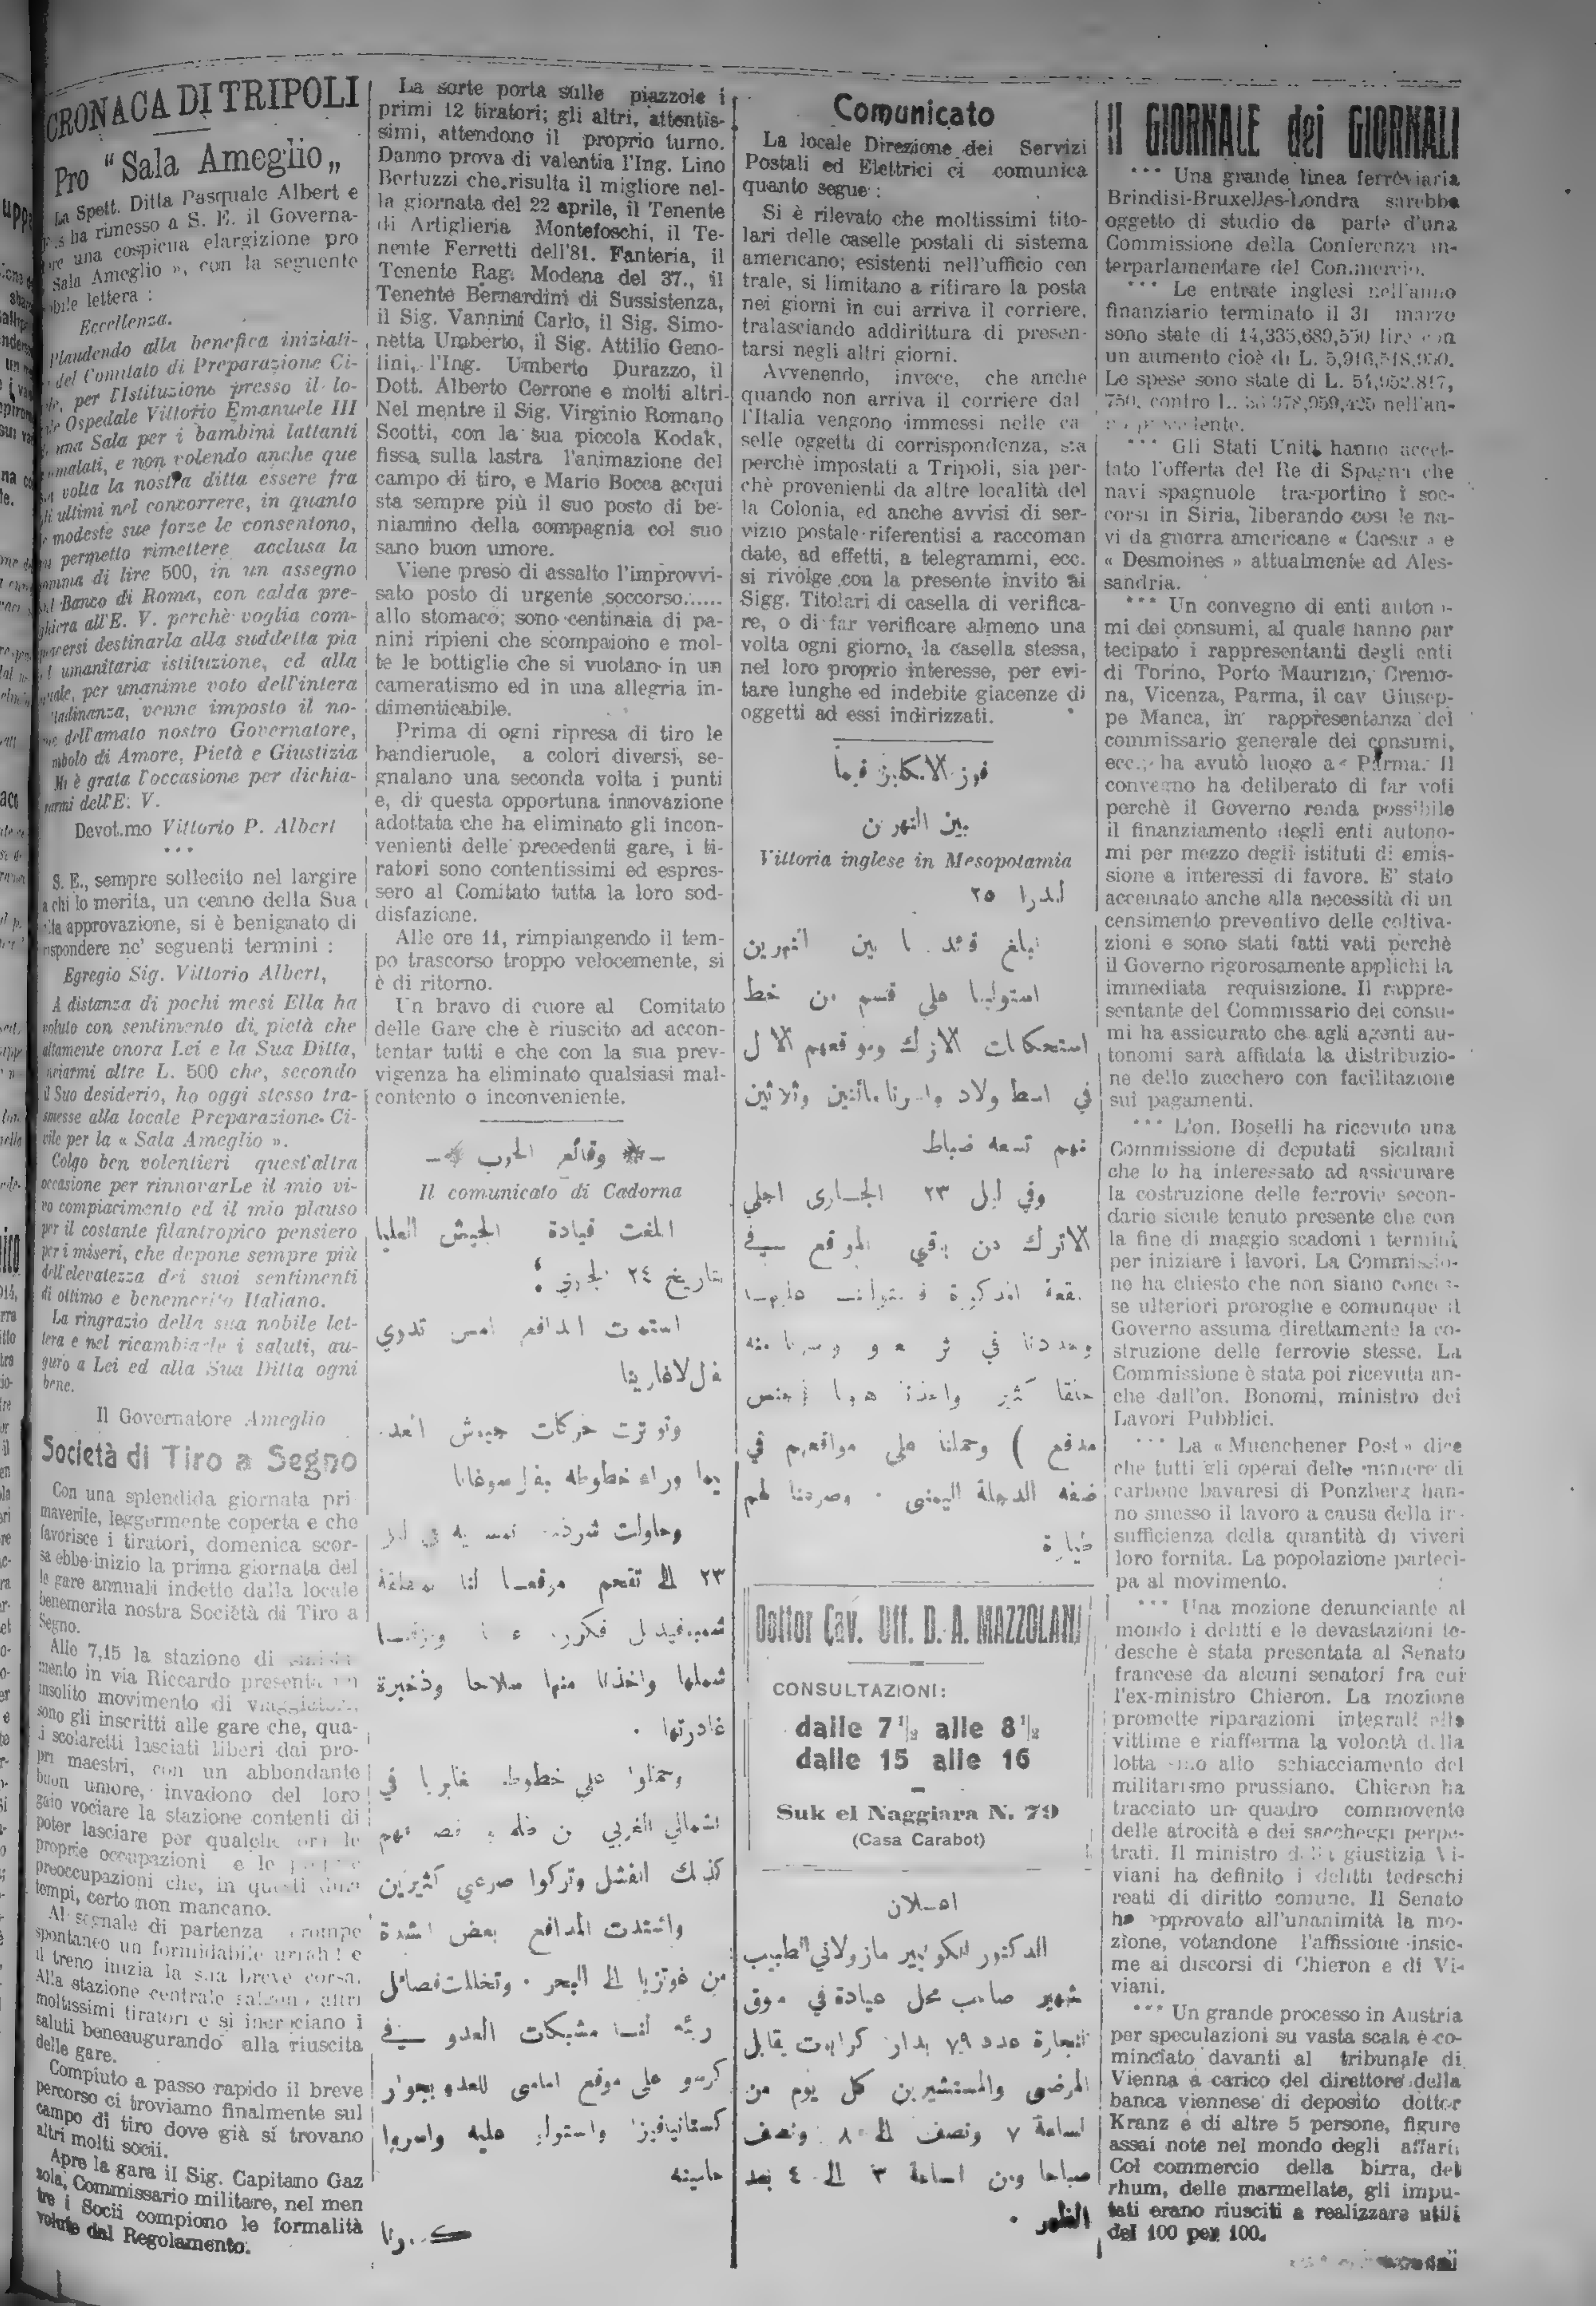 CRONACA DI TRIPOLI
Pro “ Sala Ameglio „
La Spett. Ditta Pasquale Albert e
ha rimesso a S. E. il Governa-
una cospicua elargizione pro
Sala Ameglio », con la seguente
lettera :
Eccellenza.
Plaudendo alla benefica iniziati-
del Comitato di Preparazione Ci-
per l'Istituzione presso il lo-
Ospedale Vittorio Emanuele III
una Sala per i bambini lattanti
malati, e non volendo anche que
volta la nostra ditta essere fra
ultimi nel concorrere, in quanto
modeste sue forze le consentono,
permetto rimettere acclusa la
somma di lire 500, in un assegno
Banco di Roma, con calda pre-
ghiera all'E. V. perchè voglia com-
destinarla alla suddetta pia
umanitaria istituzione, ed alla
quale, per unanime voto dell'intera
cittadinanza, venne imposto il no-
me dell'amato nostro Governatore,
simbolo di Amore, Pietà e Giustizia
Mi è grata l'occasione per dichia-
rarmi dell'E. V.
Devot.mo Vittorio P. Albert
* * *
S. E., sempre sollecito nel largire
a chi lo merita, un cenno della Sua
alta approvazione, si è benignato di
rispondere ne' seguenti termini :
Egregio Sig. Vittorio Albert,
A distanza di pochi mesi Ella ha
voluto con sentimento di pietà che
altamente onora Lei e la Sua Ditta,
inviarmi altre L. 500 che, secondo
il Suo desiderio, ho oggi stesso tra-
smesse alla locale Preparazione Ci-
vile per la « Sala Ameglio ».
Colgo ben volentieri quest'altra
occasione per rinnovarLe il mio vi-
vo compiacimento ed il mio plauso
per il costante filantropico pensiero
per i miseri, che depone sempre più
dell'elevatezza dei suoi sentimenti
di ottimo e benemerito Italiano.
La ringrazio della sua nobile let-
tera e nel ricambiarle i saluti, au-
guro a Lei ed alla Sua Ditta ogni
bene.
Il Governatore Ameglio
Società di Tiro a Segno
Con una splendida giornata pri
maverile, leggermente coperta e che
favorisce i tiratori, domenica scor-
sa ebbe inizio la prima giornata del
le gare annuali indette dalla locale
benemerita nostra Società di Tiro a
Segno.
Alle 7,15 la stazione di
mento in via Riccardo presenta un
insolito movimento di viaggiatori,
sono gli inscritti alle gare che, qua-
li scolaretti lasciati liberi dai pro-
pri maestri, con un abbondante
buon umore, invadono del loro
gaio vociare la stazione contenti di
poter lasciare per qualche ora le
proprie occupazioni e le
preoccupazioni che, in questi
tempi, certo non mancano.
Al segnale di partenza erompe
spontaneo un formidabile urrah! e
il treno inizia la sua breve corsa.
Alla stazione centrale salgono altri
moltissimi tiratori e si incrociano i
saluti beneaugurando alla riuscita
delle gare.
Compiuto a passo rapido il breve
percorso ci troviamo finalmente sul
campo di tiro dove già si trovano
altri molti socii.
Apre la gara il Sig. Capitano Gaz
zola, Commissario militare, nel men
tre i Socii compiono le formalità
volute dal Regolamento.
La sorte porta sulle piazzole i
primi 12 tiratori; gli altri, attentis-
simi, attendono il proprio turno.
Danno prova di valentia l'Ing. Lino
Bertuzzi che risulta il migliore nel-
la giornata del 22 aprile, il Tenente
di Artiglieria Montefoschi, il Te-
nente Ferretti dell'81. Fanteria, il
Tenente Rag. Modena del 37., il
Tenente Bernardini di Sussistenza,
il Sig. Vannini Carlo, il Sig. Simo-
netta Umberto, il Sig. Attilio Geno-
lini, l'Ing. Umberto Durazzo, il
Dott. Alberto Cerrone e molti altri.
Nel mentre il Sig. Virginio Romano
Scotti, con la sua piccola Kodak,
fissa sulla lastra l'animazione del
campo di tiro, e Mario Bocca acqui
sta sempre più il suo posto di be-
niamino della compagnia col suo
sano buon umore.
Viene preso di assalto l'improvvi-
sato posto di urgente soccorso......
allo stomaco; sono centinaia di pa-
nini ripieni che scompaiono e mol-
te le bottiglie che si vuotano in un
cameratismo ed in una allegria in-
dimenticabile.
Prima di ogni ripresa di tiro le
bandieruole, a colori diversi, se-
gnalano una seconda volta i punti
e, di questa opportuna innovazione
adottata che ha eliminato gli incon-
venienti delle precedenti gare, i ti-
ratori sono contentissimi ed espres-
sero al Comitato tutta la loro sod-
disfazione.
Alle ore 11, rimpiangendo il tem-
po trascorso troppo velocemente, si
è di ritorno.
Un bravo di cuore al Comitato
delle Gare che è riuscito ad accon-
tentar tutti e che con la sua prev-
vigenza ha eliminato qualsiasi mal-
contento o inconveniente.
وقائع الحرب
Il comunicato di Cadorna
ابلغت قيادة الجيش العليا
بتاريخ ٢٤ الجاري :
استمرت المدافع امس تدوي
وتوترت حركات جيوش العدو
وراء خطوطه
وحاولت شرذمة
٢٣ الى تقحم موقعا لنا بمنطقة
شملها واخذنا منها سلاحا وذخيرة
غادرتها .
وحملوا على خطوط في
الشمالي الغربي من
كذلك الفشل وتركوا صرعى كثيرين
واشتدت المدافع بعض الشدة
من غوتزيا الى البحر . وتخللت فصائل
مشبكات العدو في
كرسو على موقع امامي للعدو بجوار
كستانيافيزا واستولى عليه واسروا
حاميته
Comunicato
La locale Direzione dei Servizi
Postali ed Elettrici ci comunica
quanto segue :
Si è rilevato che moltissimi tito-
lari delle caselle postali di sistema
americano; esistenti nell'ufficio cen
trale, si limitano a ritirare la posta
nei giorni in cui arriva il corriere,
tralasciando addirittura di presen-
tarsi negli altri giorni.
Avvenendo, invece, che anche
quando non arriva il corriere dal
l'Italia vengono immessi nelle ca
selle oggetti di corrispondenza, sia
perchè impostati a Tripoli, sia per-
chè provenienti da altre località del
la Colonia, ed anche avvisi di ser-
vizio postale riferentisi a raccoman
date, ad effetti, a telegrammi, ecc.
si rivolge con la presente invito ai
Sigg. Titolari di casella di verifica-
re, o di far verificare almeno una
volta ogni giorno, la casella stessa,
nel loro proprio interesse, per evi-
tare lunghe ed indebite giacenze di
oggetti ad essi indirizzati.
فوز الانكليز فيما
بين النهرين
Vittoria inglese in Mesopotamia
لندرا ٢٥
يبلغ قائد ما بين النهرين
استولينا على قسم من خط
استحكامات الاتراك وموقعهم الاول
في اسطبولاد واسرنا مائتين وثلاثين
منهم تسعة ضباط
وفي ليل ٢٣ الجارى اجلي
الاتراك من باقي المواقع في
مدفع ) وحملنا على مواقعهم في
ضفة الدجلة اليمنى . وصردنا لهم
طيارة
Dottor Cav. Uff. D. A. MAZZOLANI
CONSULTAZIONI:
dalle 7 1/2 alle 8 1/2
dalle 15 alle 16
Suk el Naggiara N. 79
(Casa Carabot)
اعلان
الدكتور مازولاني الطبيب
شهير صاحب محل عيادة في سوق
النجارة عدد ٧٩ بدار كرابوت يقابل
المرضى والمستشيرين كل يوم من
الساعة ٧ ونصف الى ٨ ونصف
صباحا ومن الساعة ٣ الى ٤ بعد
الظهر .
Il GIORNALE dei GIORNALI
*** Una grande linea ferroviaria
Brindisi-Bruxelles-Londra sarebbe
oggetto di studio da parte d'una
Commissione della Conferenza in-
terparlamentare del Commercio.
*** Le entrate inglesi nell'anno
finanziario terminato il 31 marzo
sono state di 14,335,689,550 lire con
un aumento cioè di L.
Le spese sono state di L. 54,952,817,
750, contro L. nell'an-
no precedente.
*** Gli Stati Uniti hanno accet-
tato l'offerta del Re di Spagna che
navi spagnuole trasportino i soc-
corsi in Siria, liberando così le na-
vi da guerra americane « Caesar » e
« Desmoines » attualmente ad Ales-
sandria.
*** Un convegno di enti autono-
mi dei consumi, al quale hanno par
tecipato i rappresentanti degli enti
di Torino, Porto Maurizio, Cremo-
na, Vicenza, Parma, il cav Giusep-
pe Manca, in rappresentanza del
commissario generale dei consumi,
ecc., ha avuto luogo a Parma. Il
convegno ha deliberato di far voti
perchè il Governo renda possibile
il finanziamento degli enti autono-
mi per mezzo degli istituti di emis-
sione a interessi di favore. E' stato
accennato anche alla necessità di un
censimento preventivo delle coltiva-
zioni e sono stati fatti vati perchè
il Governo rigorosamente applichi la
immediata requisizione. Il rappre-
sentante del Commissario dei consu-
mi ha assicurato che agli agenti au-
tonomi sarà affidata la distribuzio-
ne dello zucchero con facilitazione
sui pagamenti.
*** L'on. Boselli ha ricevuto una
Commissione di deputati siciliani
che lo ha interessato ad assicurare
la costruzione delle ferrovie secon-
darie sicule tenuto presente che con
la fine di maggio scadoni i termini
per iniziare i lavori. La Commissio-
ne ha chiesto che non siano conces-
se ulteriori proroghe e comunque il
Governo assuma direttamente la co-
struzione delle ferrovie stesse. La
Commissione è stata poi ricevuta an-
che dall'on. Bonomi, ministro dei
Lavori Pubblici.
*** La « Muenchener Post » dice
che tutti gli operai delle miniere di
carbone bavaresi di Ponzberg han-
no smesso il lavoro a causa della in-
sufficienza della quantità di viveri
loro fornita. La popolazione parteci-
pa al movimento.
*** Una mozione denunciante al
mondo i delitti e le devastazioni te-
desche è stata presentata al Senato
francese da alcuni senatori fra cui
l'ex-ministro Chieron. La mozione
promette riparazioni integrali alle
vittime e riafferma la volontà della
lotta sino allo schiacciamento del
militarismo prussiano. Chieron ha
tracciato un quadro commovente
delle atrocità e dei saccheggi perpe-
trati. Il ministro della giustizia Vi-
viani ha definito i delitti tedeschi
reati di diritto comune. Il Senato
ha approvato all'unanimità la mo-
zione, votandone l'affissione insie-
me ai discorsi di Chieron e di Vi-
viani.
*** Un grande processo in Austria
per speculazioni su vasta scala è co-
minciato davanti al tribunale di
Vienna a carico del direttore della
banca viennese di deposito dottor
Kranz e di altre 5 persone, figure
assai note nel mondo degli affari.
Col commercio della birra, del
rhum, delle marmellate, gli impu-
tati erano riusciti a realizzare utili
del 100 per 100.